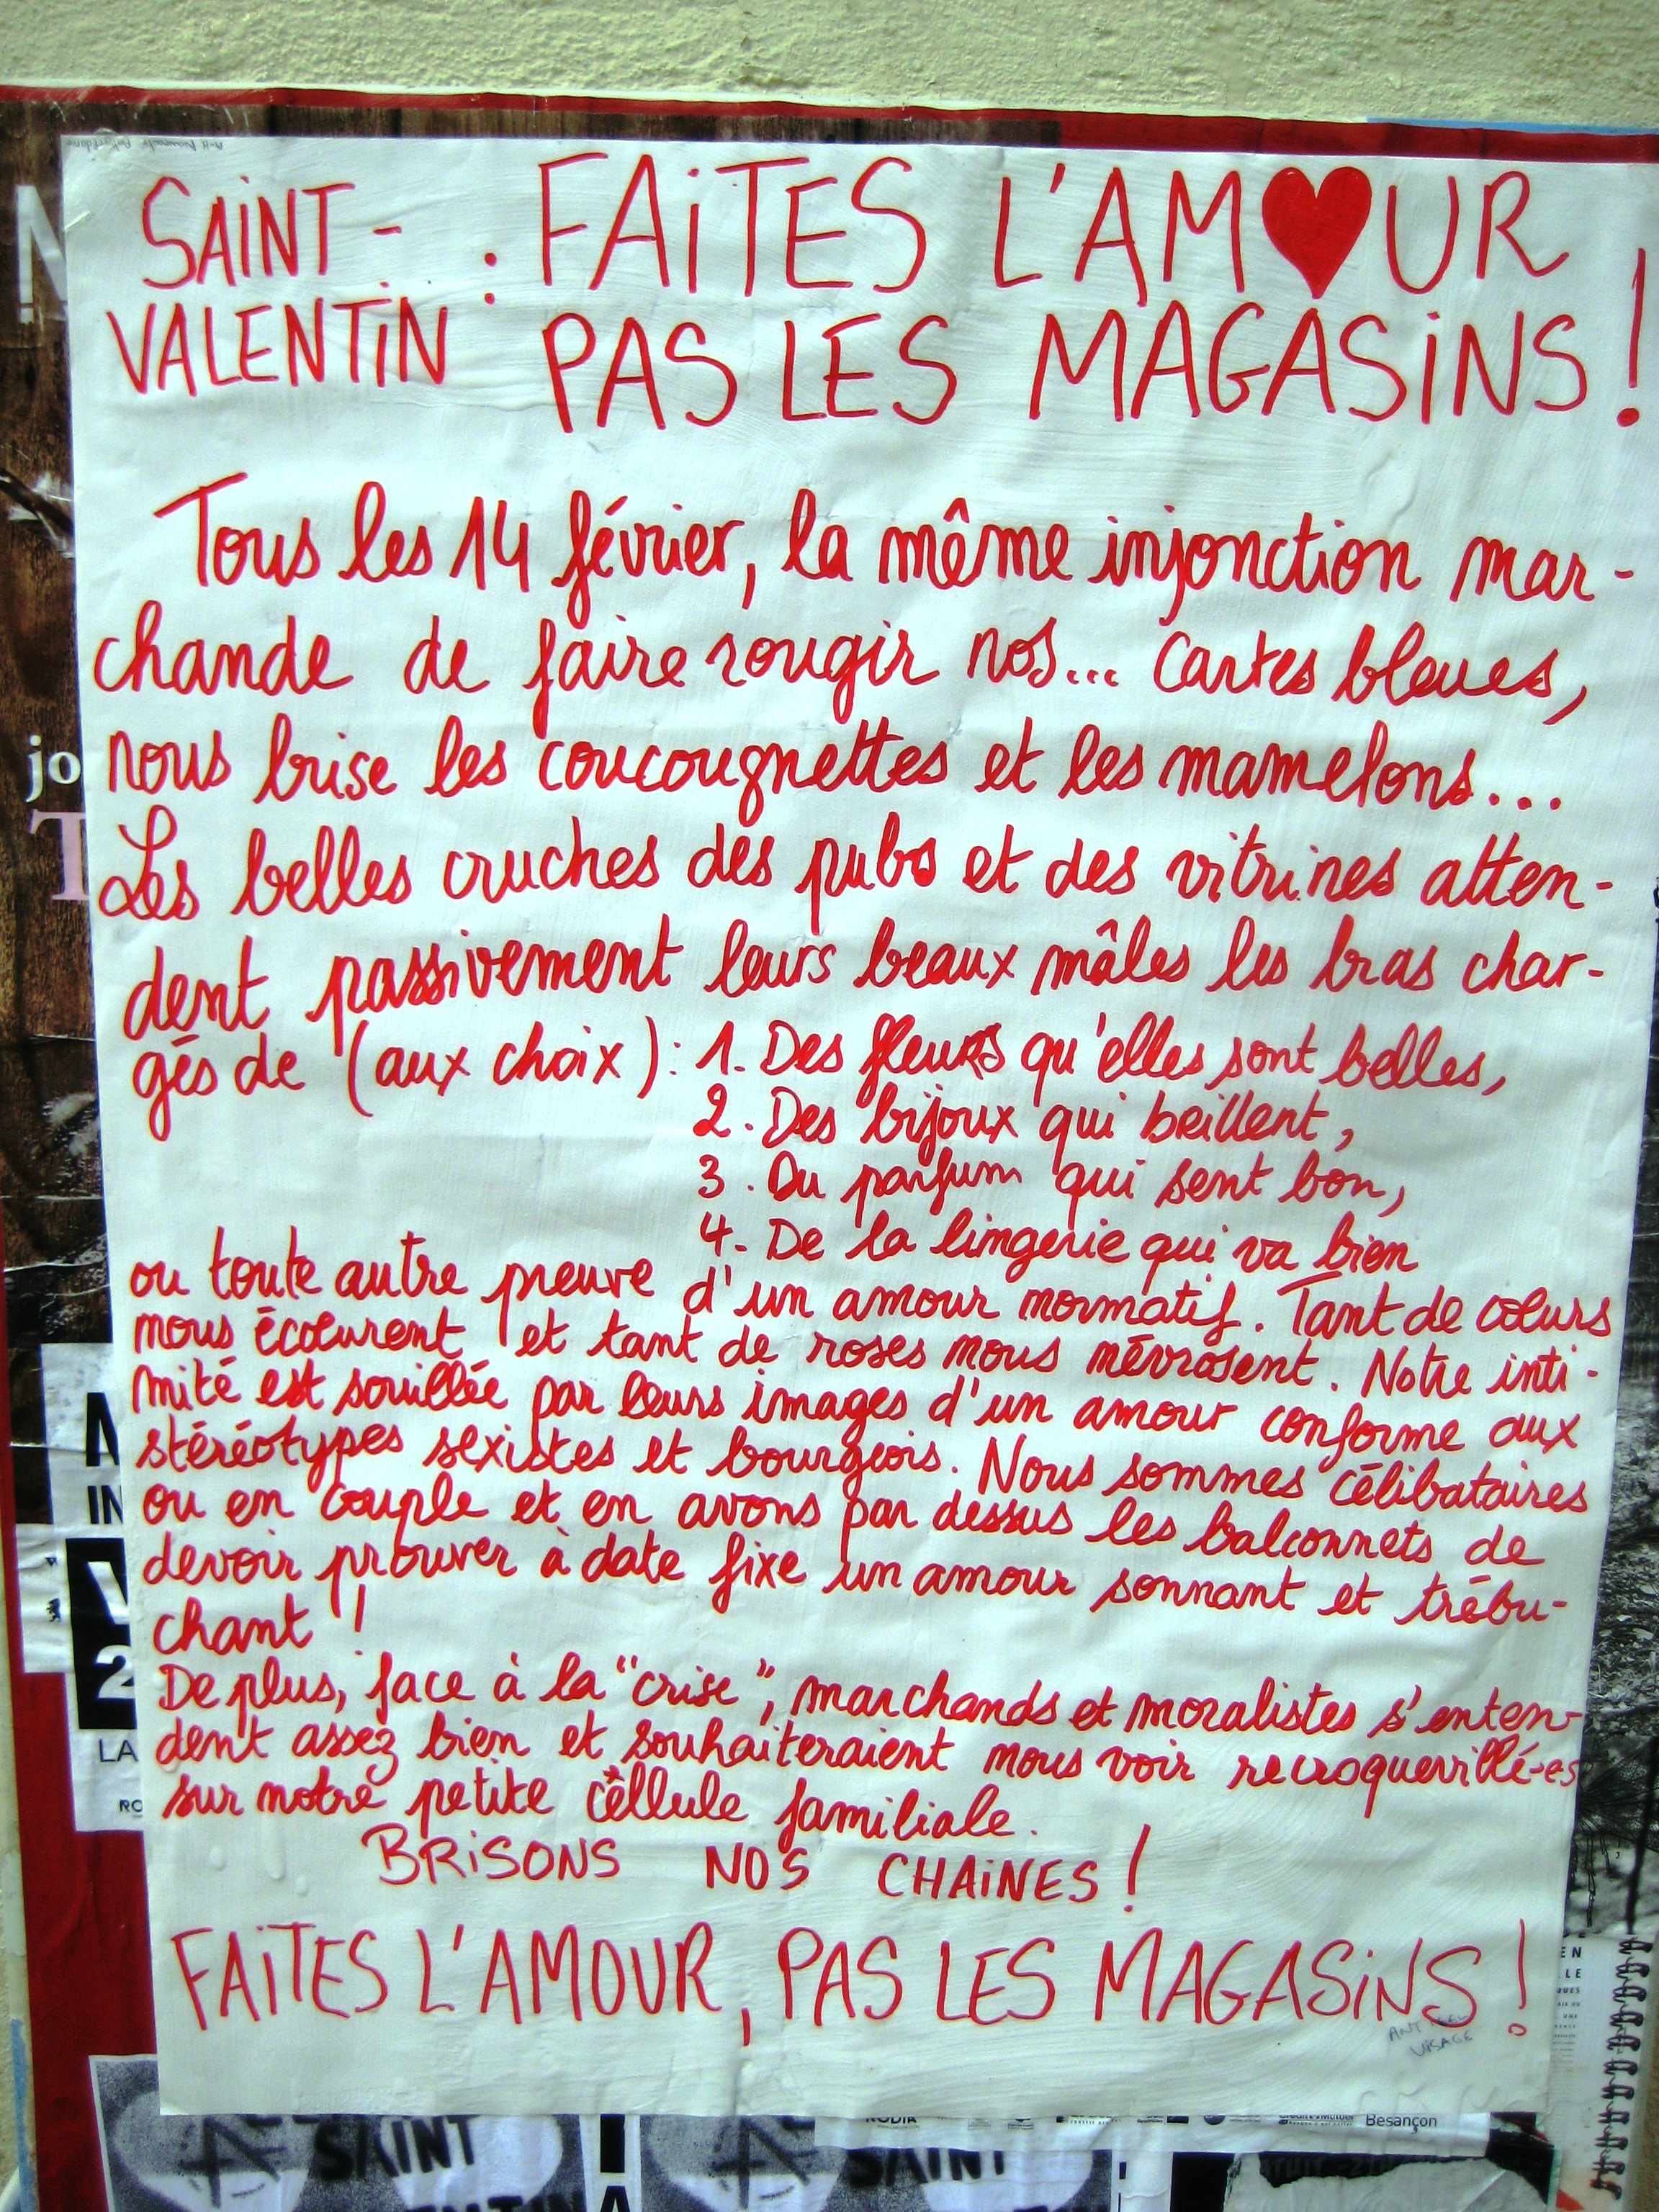 SAINT - : FAITES L'AM♥UR
VALENTIN PAS LES MAGASINS !
Tous les 14 février, la même injonction mar-
chande de faire rougir nos... cartes bleues,
nous brise les coucougnettes et les mamelons...
Les belles cruches des pubs et des vitrines atten-
dent passivement leurs beaux mâles les bras char-
gés de (aux choix) : 1. Des fleurs qu'elles sont belles,
2. Des bijoux qui beillent,
3. Du parfum qui sent bon,
4. De la lingerie qui va bien
ou toute autre preuve d'un amour normatif. Tant de cœurs
nous écœurent et tant de roses nous névrosent. Notre inti-
mité est souillée par leurs images d'un amour conforme aux
stéréotypes sexistes et bourgeois. Nous sommes célibataires
ou en couple et en avons par dessus les balconnets de
devoir prouver à date fixe un amour sonnant et trébu-
chant !
De plus, face à la "crise", marchands et moralistes s'enten-
dent assez bien et souhaiteraient nous voir recroquevillé-e-s
sur notre petite cellule familiale.
BRISONS NOS CHAINES !
FAITES L'AMOUR, PAS LES MAGASINS !
VISAGE
jo
T
IN
2
LA
RO
EN
LE
RODIA
Besançon
SAINT
SAINT